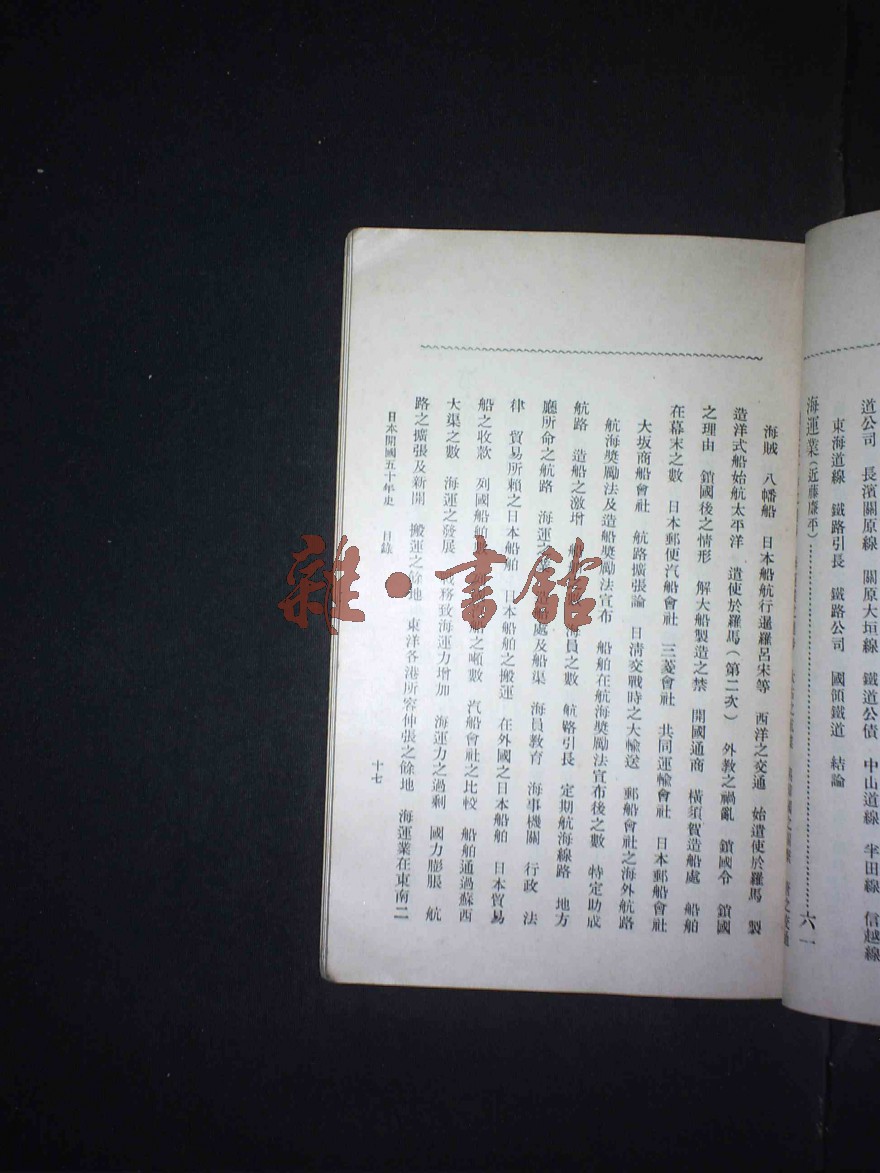 道公司　長濱關原線　關原大垣線　鐵道公債　中山道線　半田線　信越線
東海道線　鐵路引長　鐵路公司　國領鐵道　結論
海運業（近藤廉平）……六一
海賊　八幡船　日本船航行暹羅呂宋等　西洋之交通　始遣使於羅馬　製
造洋式船始航太平洋　遣使於羅馬（第二次）　外教之禍亂　鎖國令　鎖國
之理由　鎖國後之情形　解大船製造之禁　開國通商　橫須賀造船處　船舶
在幕末之數　日本郵便汽船會社　三菱會社　共同運輸會社　日本郵船會社
大坂商船會社　航路擴張論　日清交戰時之大輸送　郵船會社之海外航路
航海獎勵法及造船獎勵法宣布　船舶在航海獎勵法宣布後之數　特定助成
航路　造船之激增　海員之數　航路引長　定期航海線路　地方
廳所命之航路　海運之　處及船渠　海員教育　海事機關　行政　法
律　貿易所賴之日本船舶　日本船舶之搬運　在外國之日本船舶　日本貿易
船之收款　列國船舶　船之噸數　汽船會社之比較　船舶通過蘇西
大渠之數　海運之發展　務致海運力增加　海運力之過剩　國力膨脹　航
路之擴張及新開　搬運之餘地　東洋各港所容伸張之餘地　海運業在東南二
日本開國五十年史　目錄　十七
雜·書館